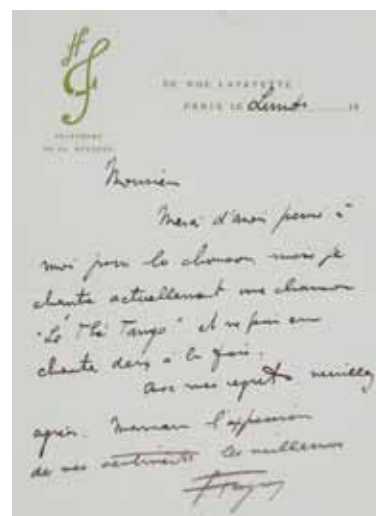 RUE LAFAYETTE
PARIS LE Lundi 19
TELEPHONE
Monsieur
Merci d'avoir pensé à
moi pour la chanson mais je
chante actuellement une chanson
"Le Thé Tango" et ne puis en
chanter deux à la fois.
Avec mes regrets veuillez
agréer Monsieur l'expression
de mes sentiments les meilleurs